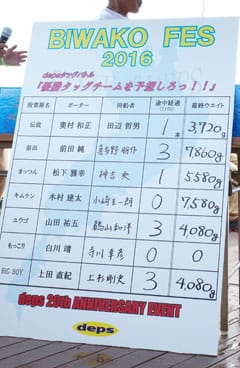 BIWAKO FES
2016
depsタッグバトル
『優勝タッグチームを予想しろっ！！』
投票箱名 ボーター 同船者 途中経過(11:00) 最終ウエイト
伝説 奥村 和正 田辺 哲男 1本 3,720g
前田 前田 純 3 7,860g
まっつん 松下 雅幸 神吉 史 1 5,580g
キムケン 木村 建太 小崎 圭一朗 0 7,580g
ユウゴ 山田 祐五 3 4,080g
もっこり 白川 靖 寺川 0 0
BIG BOY 上田 直紀 上杉 剛史 3 4,080g
deps 20th ANNIVERSARY EVENT
deps